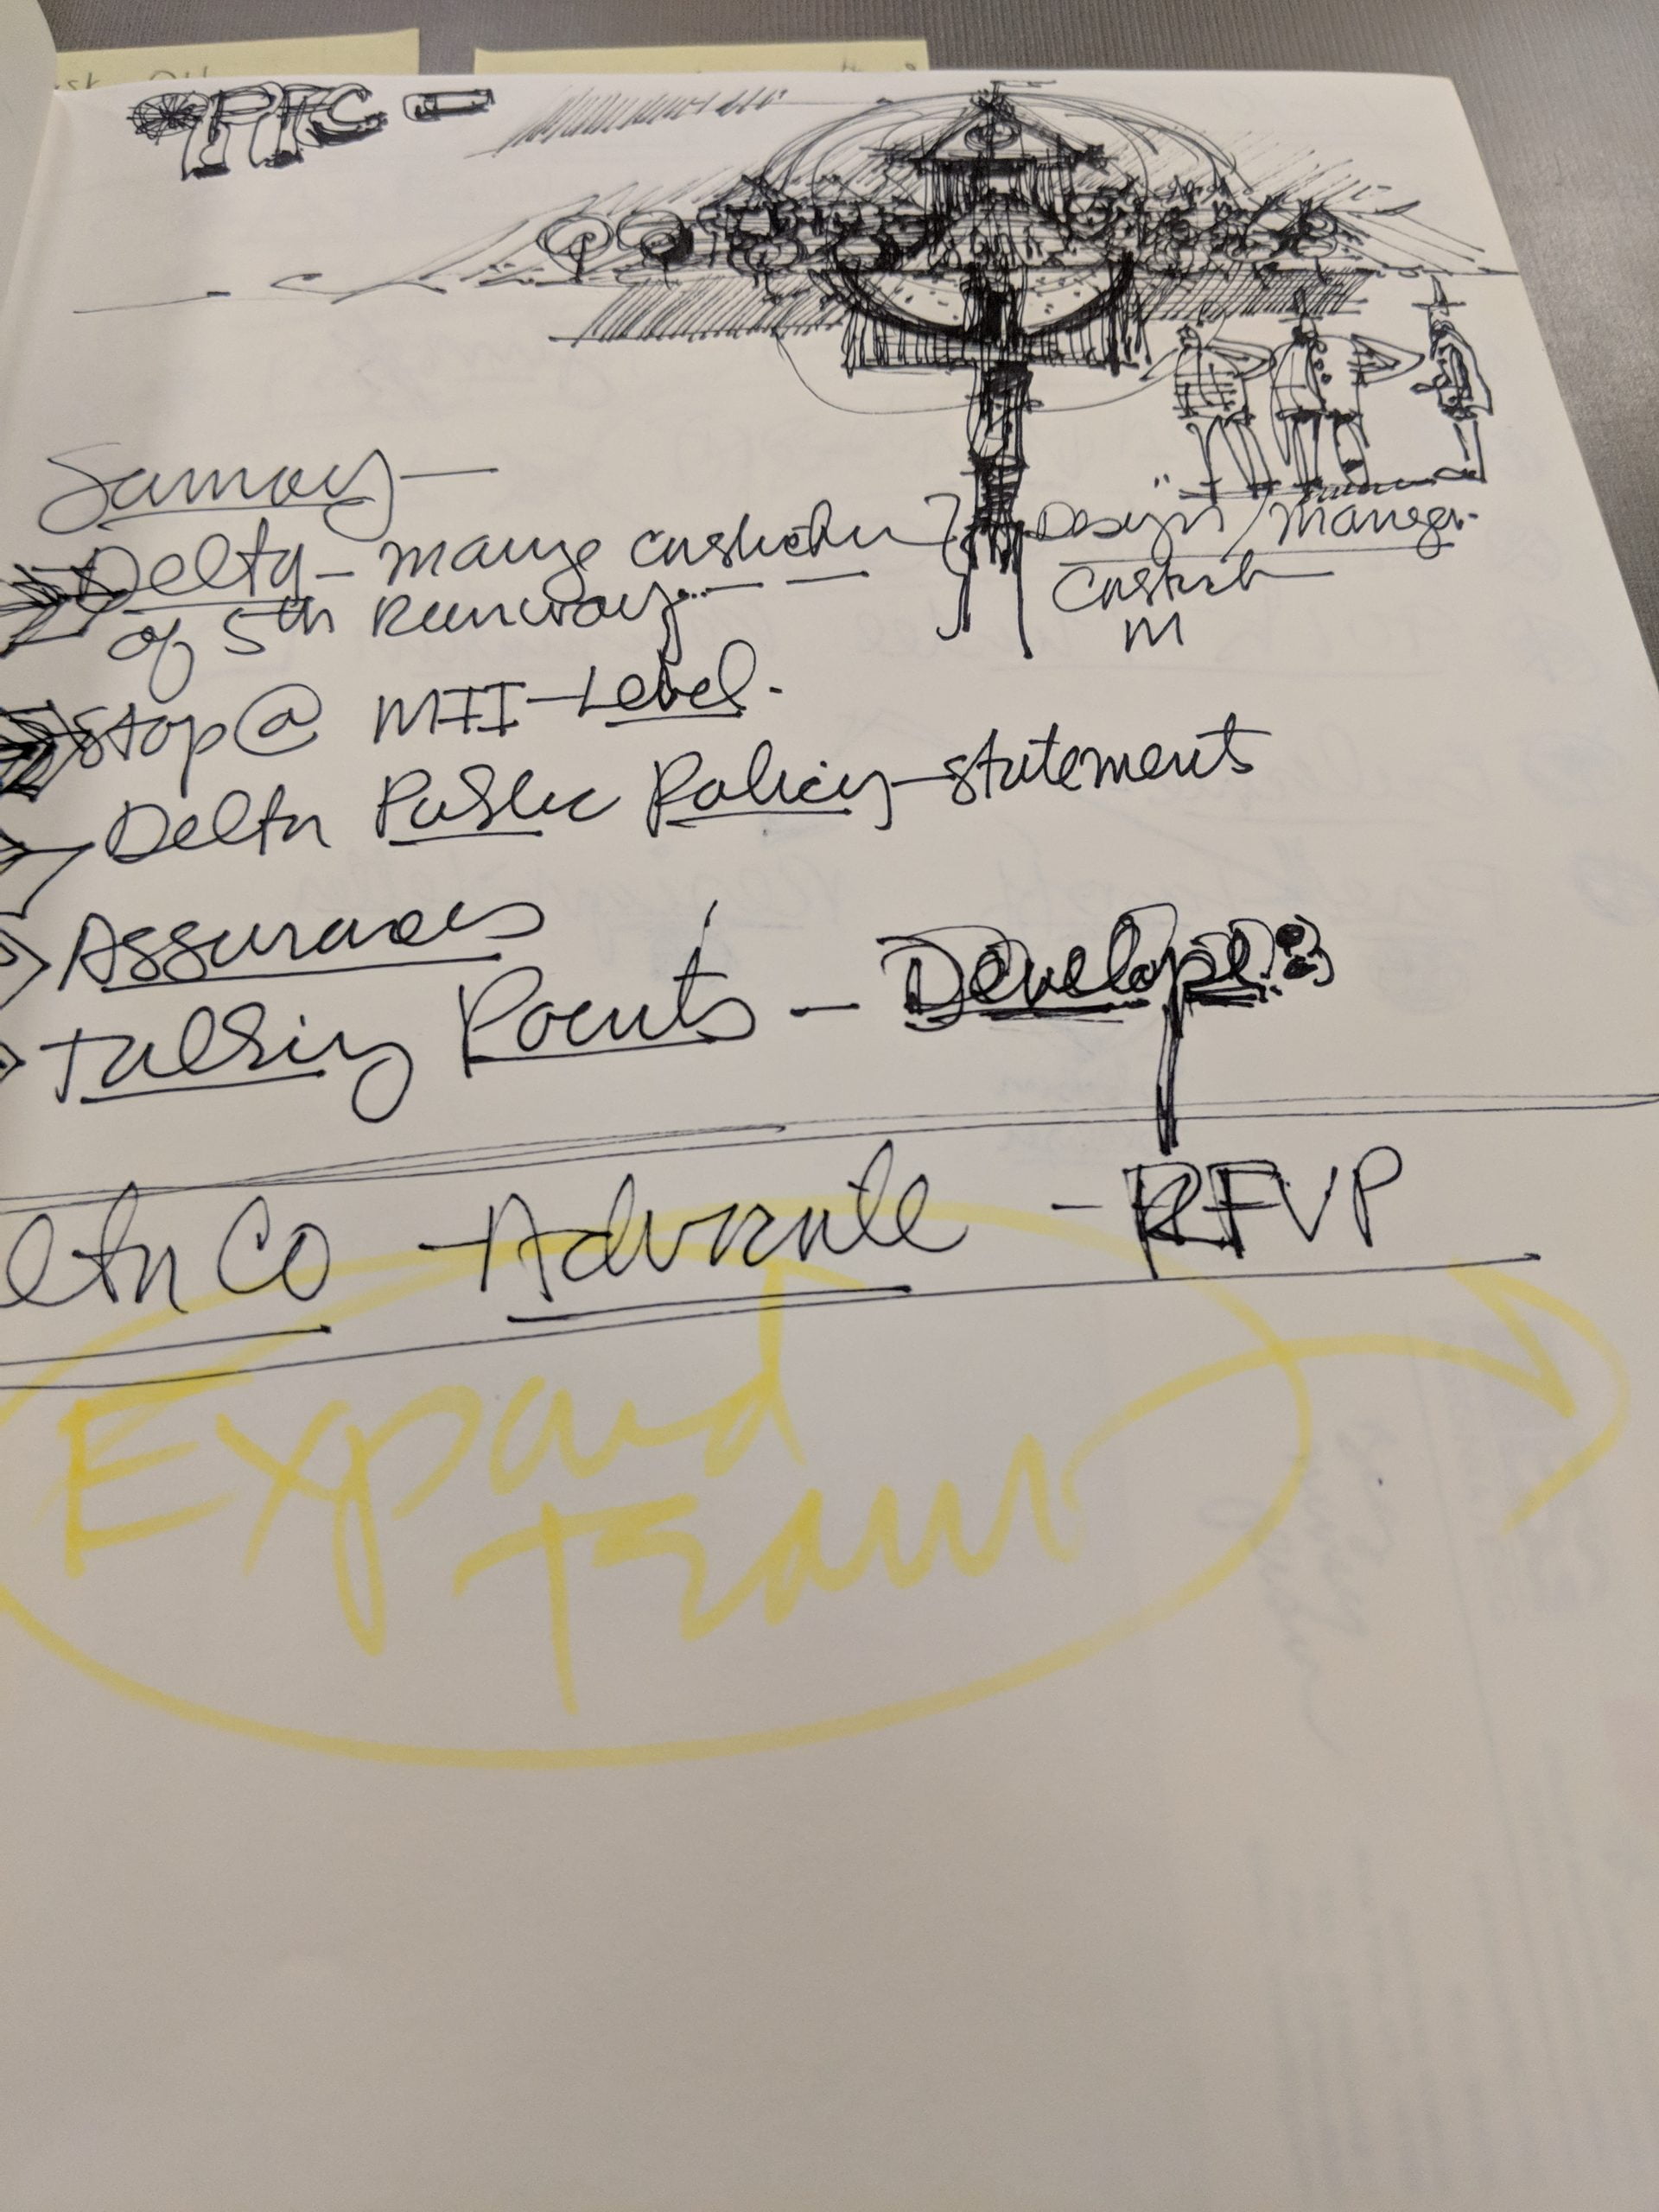 PTC -
Delta - manage construction } Design / Manage.
of 5th Runway...
Stop @ MII - Level.
Delta Public Policy - statements
Assurances
Talking Points - Develope:
Co - Advocate - RFVP
Expand
Team